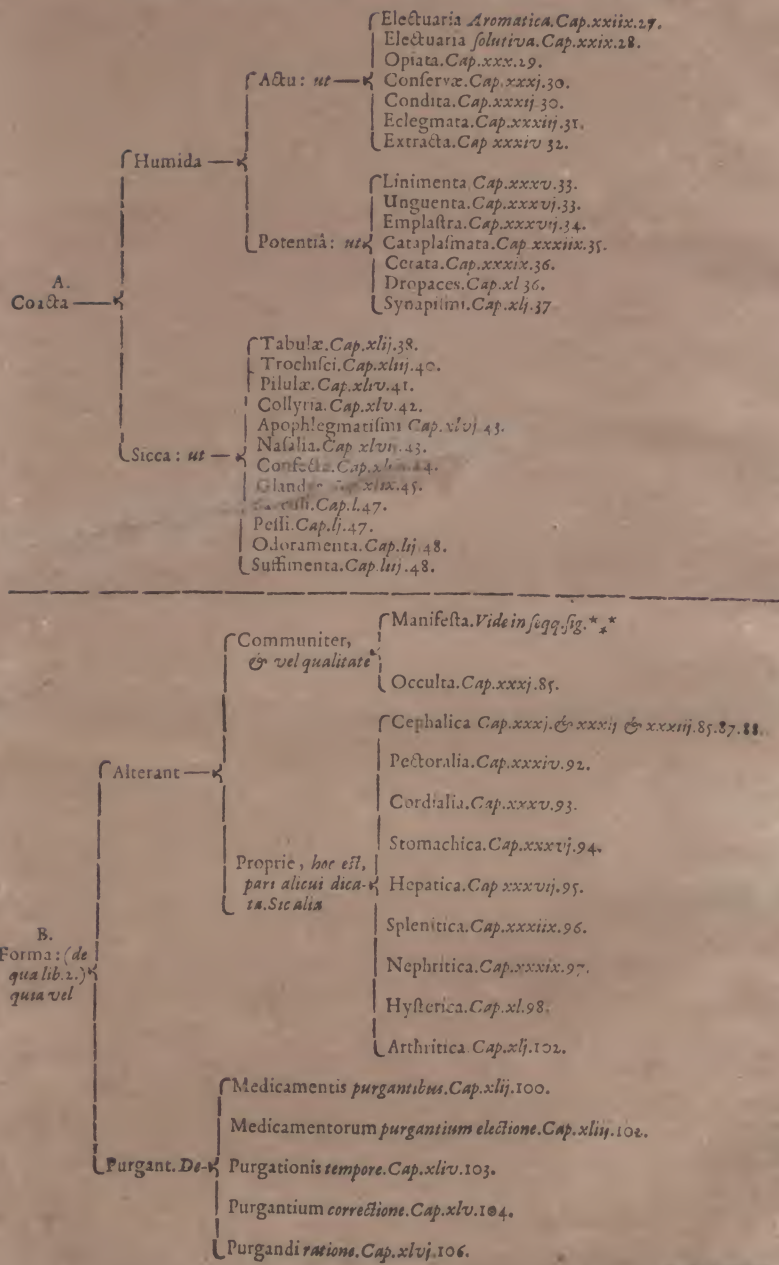 Electuaria Aromatica.Cap.xxiix.27.
Electuaria ſolutiva.Cap.xxix.28.
Opiata.Cap.xxx.29.
Actu: ut
Conſervæ.Cap.xxxj.30.
Condita.Cap.xxxij.30.
Eclegmata.Cap.xxxiij.31.
Extracta.Cap xxxiv 32.
Humida
Linimenta.Cap.xxxv.33.
Unguenta.Cap.xxxvj.33.
Emplaſtra.Cap.xxxvij.34.
Potentiâ: ut
Cataplaſmata.Cap.xxxiix.35.
Cerata.Cap.xxxix.36.
Dropaces.Cap.xl 36.
Synapiſmi.Cap.xlj.37
A.
Coacta
Tabulæ.Cap.xlij.38.
Trochiſci.Cap.xliij.40.
Pilulæ.Cap.xliv.41.
Collyria.Cap.xlv.42.
Apophlegmatiſmi Cap.xlvj.43.
Sicca: ut
Naſalia.Cap xlvij.43.
Confecta.Cap.
Cap.xlix.45.
Cap.l.47.
Peſſi.Cap.lj.47.
Odoramenta.Cap.lij.48.
Suffimenta.Cap.liij.48.
Communiter,
& vel qualitate
Manifeſta.Vide in ſeqq.ſig.*⁎*
Occulta.Cap.xxxj.85.
Alterant
Cephalica Cap.xxxj.& xxxij & xxxiij.85.87.88.
Pectoralia.Cap.xxxiv.92.
Cordialia.Cap.xxxv.93.
Stomachica.Cap.xxxvj.94.
Proprie, hoc eſt,
parti alicui dica-
ta.Sic alia
Hepatica.Cap xxxvij.95.
Splenitica.Cap.xxxiix.96.
Nephritica.Cap.xxxix.97.
Hyſterica.Cap.xl.98.
Arthritica.Cap.xlj.102.
B.
Forma:(de
qua lib.2.)
quia vel
Medicamentis purgantibus.Cap.xlij.100.
Medicamentorum purgantium electione.Cap.xliij.102.
Purgant.De-
Purgationis tempore.Cap.xliv.103.
Purgantium correctione.Cap.xlv.104.
Purgandi ratione.Cap.xlvj.106.